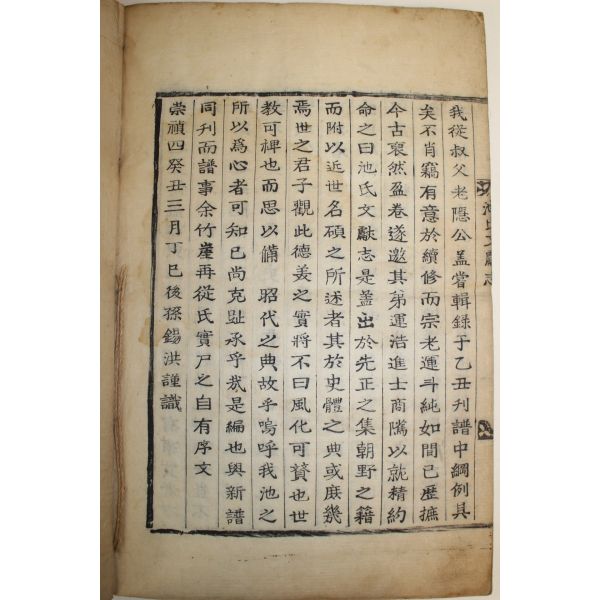 我從叔父老隱公盖嘗輯錄于乙丑刋譜中綱例具
矣不肖竊有意於續修而宗老運斗純如間已歷摭
今古裒然盈卷遂邀其弟運浩進士商隲以就精約
命之曰池氏文獻志是盖出於先正之集朝野之籍
而附以近世名碩之所述者其於史體之典或庶幾
焉世之君子觀此德美之實將不曰風化可賛也世
教可裨也而思以備昭代之典故乎嗚呼我池之
所以爲心者可知已尚克趾承乎哉是編也與新譜
同刋而譜事余竹崖再從氏實尸之自有序文
崇禎四癸丑三月丁巳後孫錫洪謹識
池氏文獻志